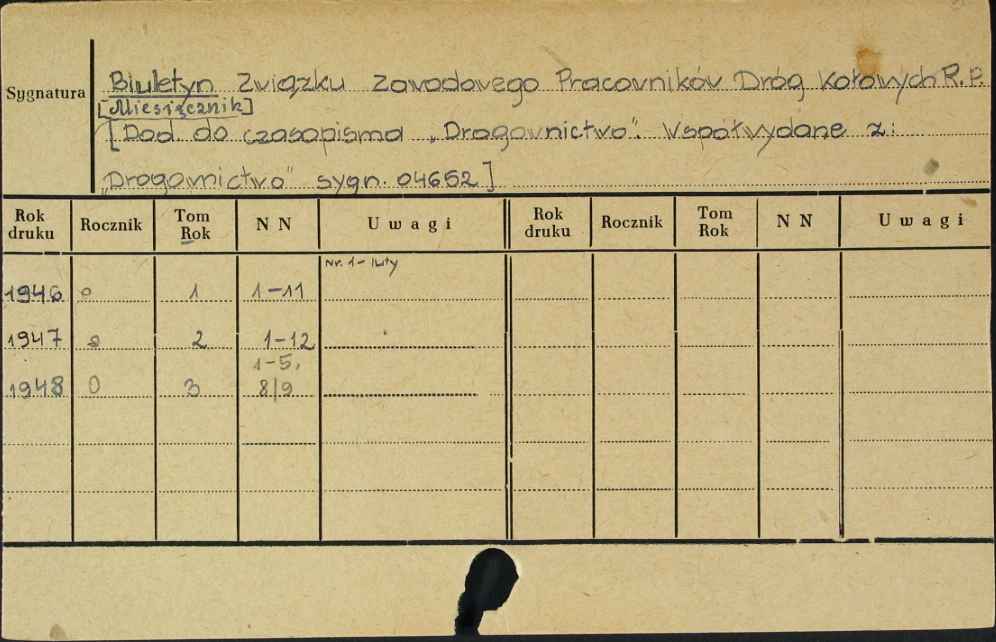 Sygnatura
Biuletyn Związku Zawodowego Pracowników Dróg Kołowych R.P.
[Miesięcznik]
[Dod. do czasopisma „Drogownictwo". Współwydane z:
„Drogownictwo" sygn. 04652]
Rok druku Rocznik Tom Rok NN Uwagi Rok druku Rocznik Tom Rok NN Uwagi
Nr. 1 - luty
1946 0 1 1-11
1947 0 2 1-12
1-5,
1948 0 3 8/9